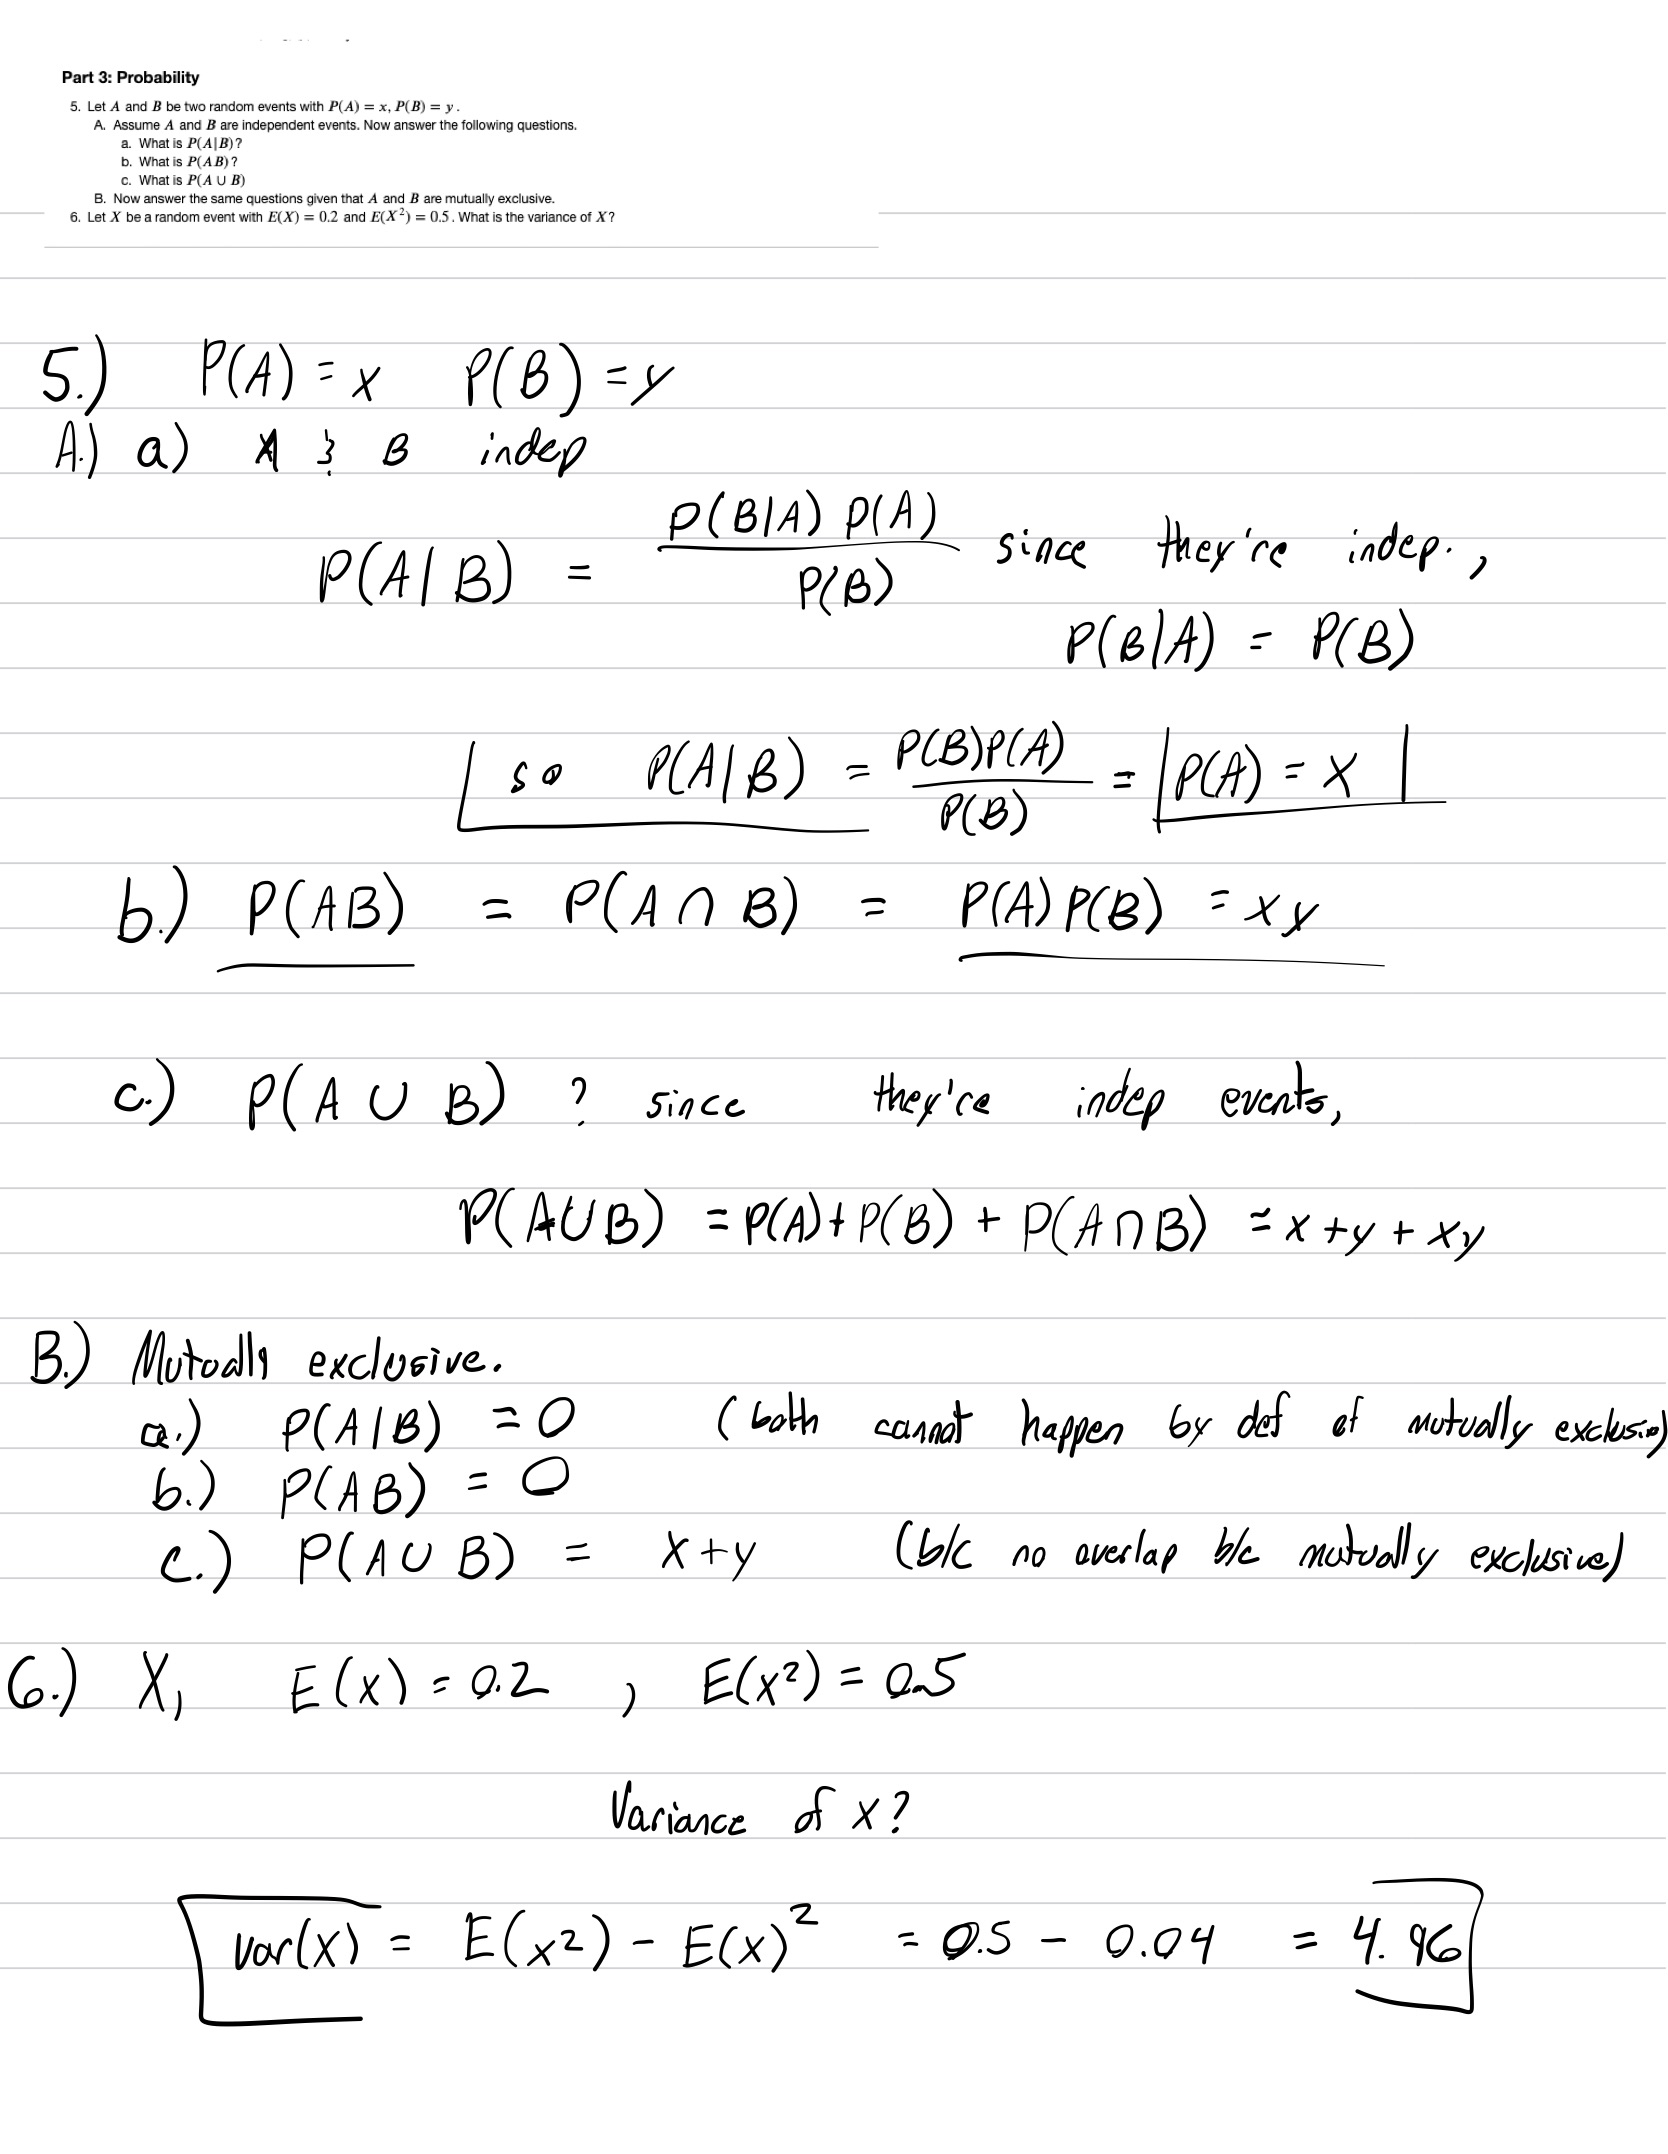 Part 3: Probability
5. Let A and B be two random events with P(A) = x, P(B) = y.
A. Assume A and B are independent events. Now answer the following questions.
a. What is P(A|B)?
b. What is P(AB)?
c. What is P(A ∪ B)
B. Now answer the same questions given that A and B are mutually exclusive.
6. Let X be a random event with E(X) = 0.2 and E(X²) = 0.5. What is the variance of X?
5.) P(A) = x P(B) = y
A.) a) A & B indep
P(A|B) = P(B|A) P(A) / P(B) since they're indep.,
P(B|A) = P(B)
so P(A|B) = P(B)P(A) / P(B) = P(A) = x
b.) P(AB) = P(A ∩ B) = P(A) P(B) = xy
c.) P(A ∪ B) ? since they're indep events,
P(A∪B) = P(A) + P(B) + P(A∩B) = x + y + xy
B.) Mutually exclusive.
a.) P(A|B) = 0 (both cannot happen by def of mutually exclusive)
b.) P(AB) = 0
c.) P(A ∪ B) = x + y (b/c no overlap b/c mutually exclusive)
6.) X, E(x) = 0.2 , E(x²) = 0.5
Variance of x?
var(x) = E(x²) - E(x)² = 0.5 - 0.04 = 4.96